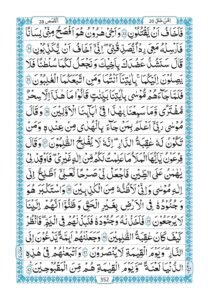 القصص ٢٨
امن خلق ٢٠
فَاَخَافُ اَنْ يَّقْتُلُوْنِ وَاَخِيْ هٰرُوْنُ هُوَ اَفْصَحُ مِنِّيْ لِسَانًا
فَاَرْسِلْهُ مَعِيَ رِدْاً يُّصَدِّقُنِيْٓ اِنِّيْٓ اَخَافُ اَنْ يُّكَذِّبُوْنِ
قَالَ سَنَشُدُّ عَضُدَكَ بِاَخِيْكَ وَنَجْعَلُ لَكُمَا سُلْطٰنًا فَلَا
يَصِلُوْنَ اِلَيْكُمَا بِاٰيٰتِنَا اَنْتُمَا وَمَنِ اتَّبَعَكُمَا الْغٰلِبُوْنَ
فَلَمَّا جَآءَهُمْ مُّوْسٰى بِاٰيٰتِنَا بَيِّنٰتٍ قَالُوْا مَا هٰذَآ اِلَّا سِحْرٌ
مُّفْتَرًى وَّمَا سَمِعْنَا بِهٰذَا فِيْٓ اٰبَآئِنَا الْاَوَّلِيْنَ وَقَالَ
مُوْسٰى رَبِّيْٓ اَعْلَمُ بِمَنْ جَآءَ بِالْهُدٰى مِنْ عِنْدِهٖ وَمَنْ
تَكُوْنُ لَهٗ عَاقِبَةُ الدَّارِ اِنَّهٗ لَا يُفْلِحُ الظّٰلِمُوْنَ وَقَالَ
فِرْعَوْنُ يٰٓاَيُّهَا الْمَلَاُ مَا عَلِمْتُ لَكُمْ مِّنْ اِلٰهٍ غَيْرِيْ فَاَوْقِدْ لِيْ
يٰهَامٰنُ عَلَى الطِّيْنِ فَاجْعَلْ لِّيْ صَرْحًا لَّعَلِّيْٓ اَطَّلِعُ اِلٰٓى
اِلٰهِ مُوْسٰى وَاِنِّيْ لَاَظُنُّهٗ مِنَ الْكٰذِبِيْنَ وَاسْتَكْبَرَ هُوَ
وَجُنُوْدُهٗ فِي الْاَرْضِ بِغَيْرِ الْحَقِّ وَظَنُّوْٓا اَنَّهُمْ اِلَيْنَا
لَا يُرْجَعُوْنَ فَاَخَذْنٰهُ وَجُنُوْدَهٗ فَنَبَذْنٰهُمْ فِي الْيَمِّ فَانْظُرْ
كَيْفَ كَانَ عَاقِبَةُ الظّٰلِمِيْنَ وَجَعَلْنٰهُمْ اَئِمَّةً يَّدْعُوْنَ اِلَى
النَّارِ وَيَوْمَ الْقِيٰمَةِ لَا يُنْصَرُوْنَ وَاَتْبَعْنٰهُمْ فِيْ هٰذِهِ
الدُّنْيَا لَعْنَةً وَيَوْمَ الْقِيٰمَةِ هُمْ مِّنَ الْمَقْبُوْحِيْنَ
352